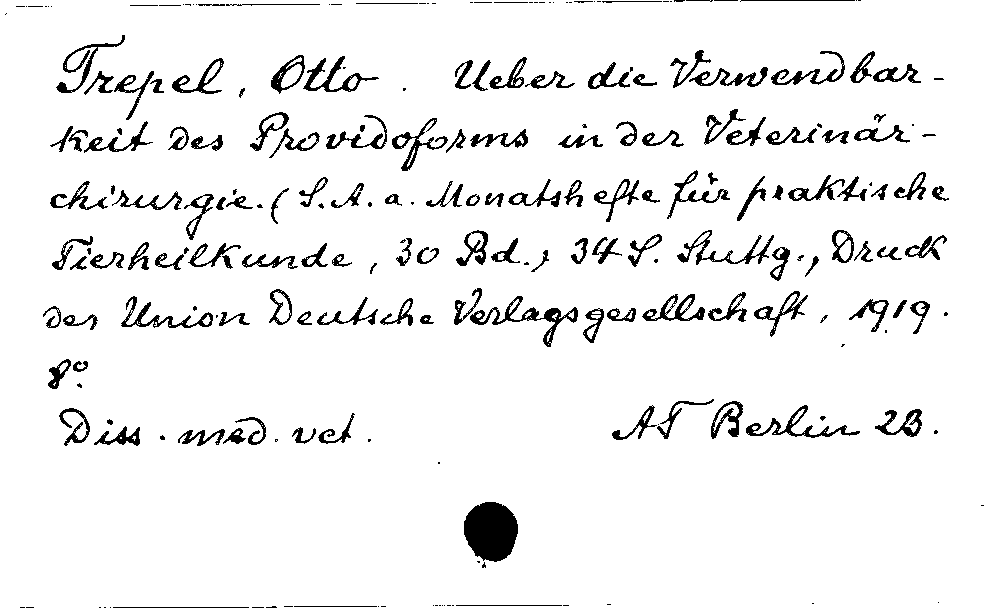 Trepel, Otto. Ueber die Verwendbar-
keit des Providoforms in der Veterinär-
chirurgie. (S.A. a. Monatshefte für praktische
Tierheilkunde, 30 Bd., 34 S. Stuttg., Druck
der Union Deutsche Verlagsgesellschaft, 1919.
8°.
Diss. med. vet. AT Berlin 23.